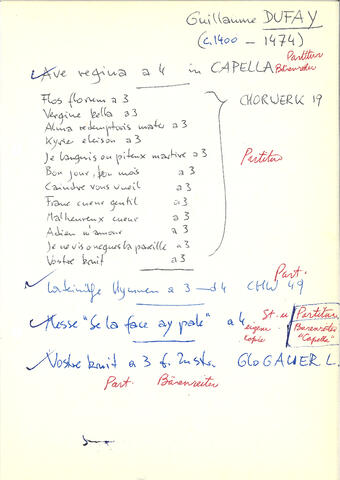 Guillaume DUFAY
(c.1400 – 1474)
Ave regina a 4 in CAPELLA Partitur Bärenreiter
Flos florum a 3 CHORWERK 19
Vergine bella a 3
Alma redemptoris mater a 3
Kyrie eleison a 3
Je languis ou piteux martire a 3 Partitur
Bon jour, bon mois a 3
Ce a 3
Franc cueur gentil a 3
Malheureux cueur a 3
Adieu m'amour a 3
Je ne vis oncques la pareille a 3
Vostre bruit a 3
Part.
Hymnen a 3 – d 4 CHW 49
Messe "Se la face ay pale" a 4 St. u. Partitur
eigene Kopie Bärenreiter "Capella"
Vostre bruit a 3 f. Instr. GLOGAUER L.
Part. Bärenreiter